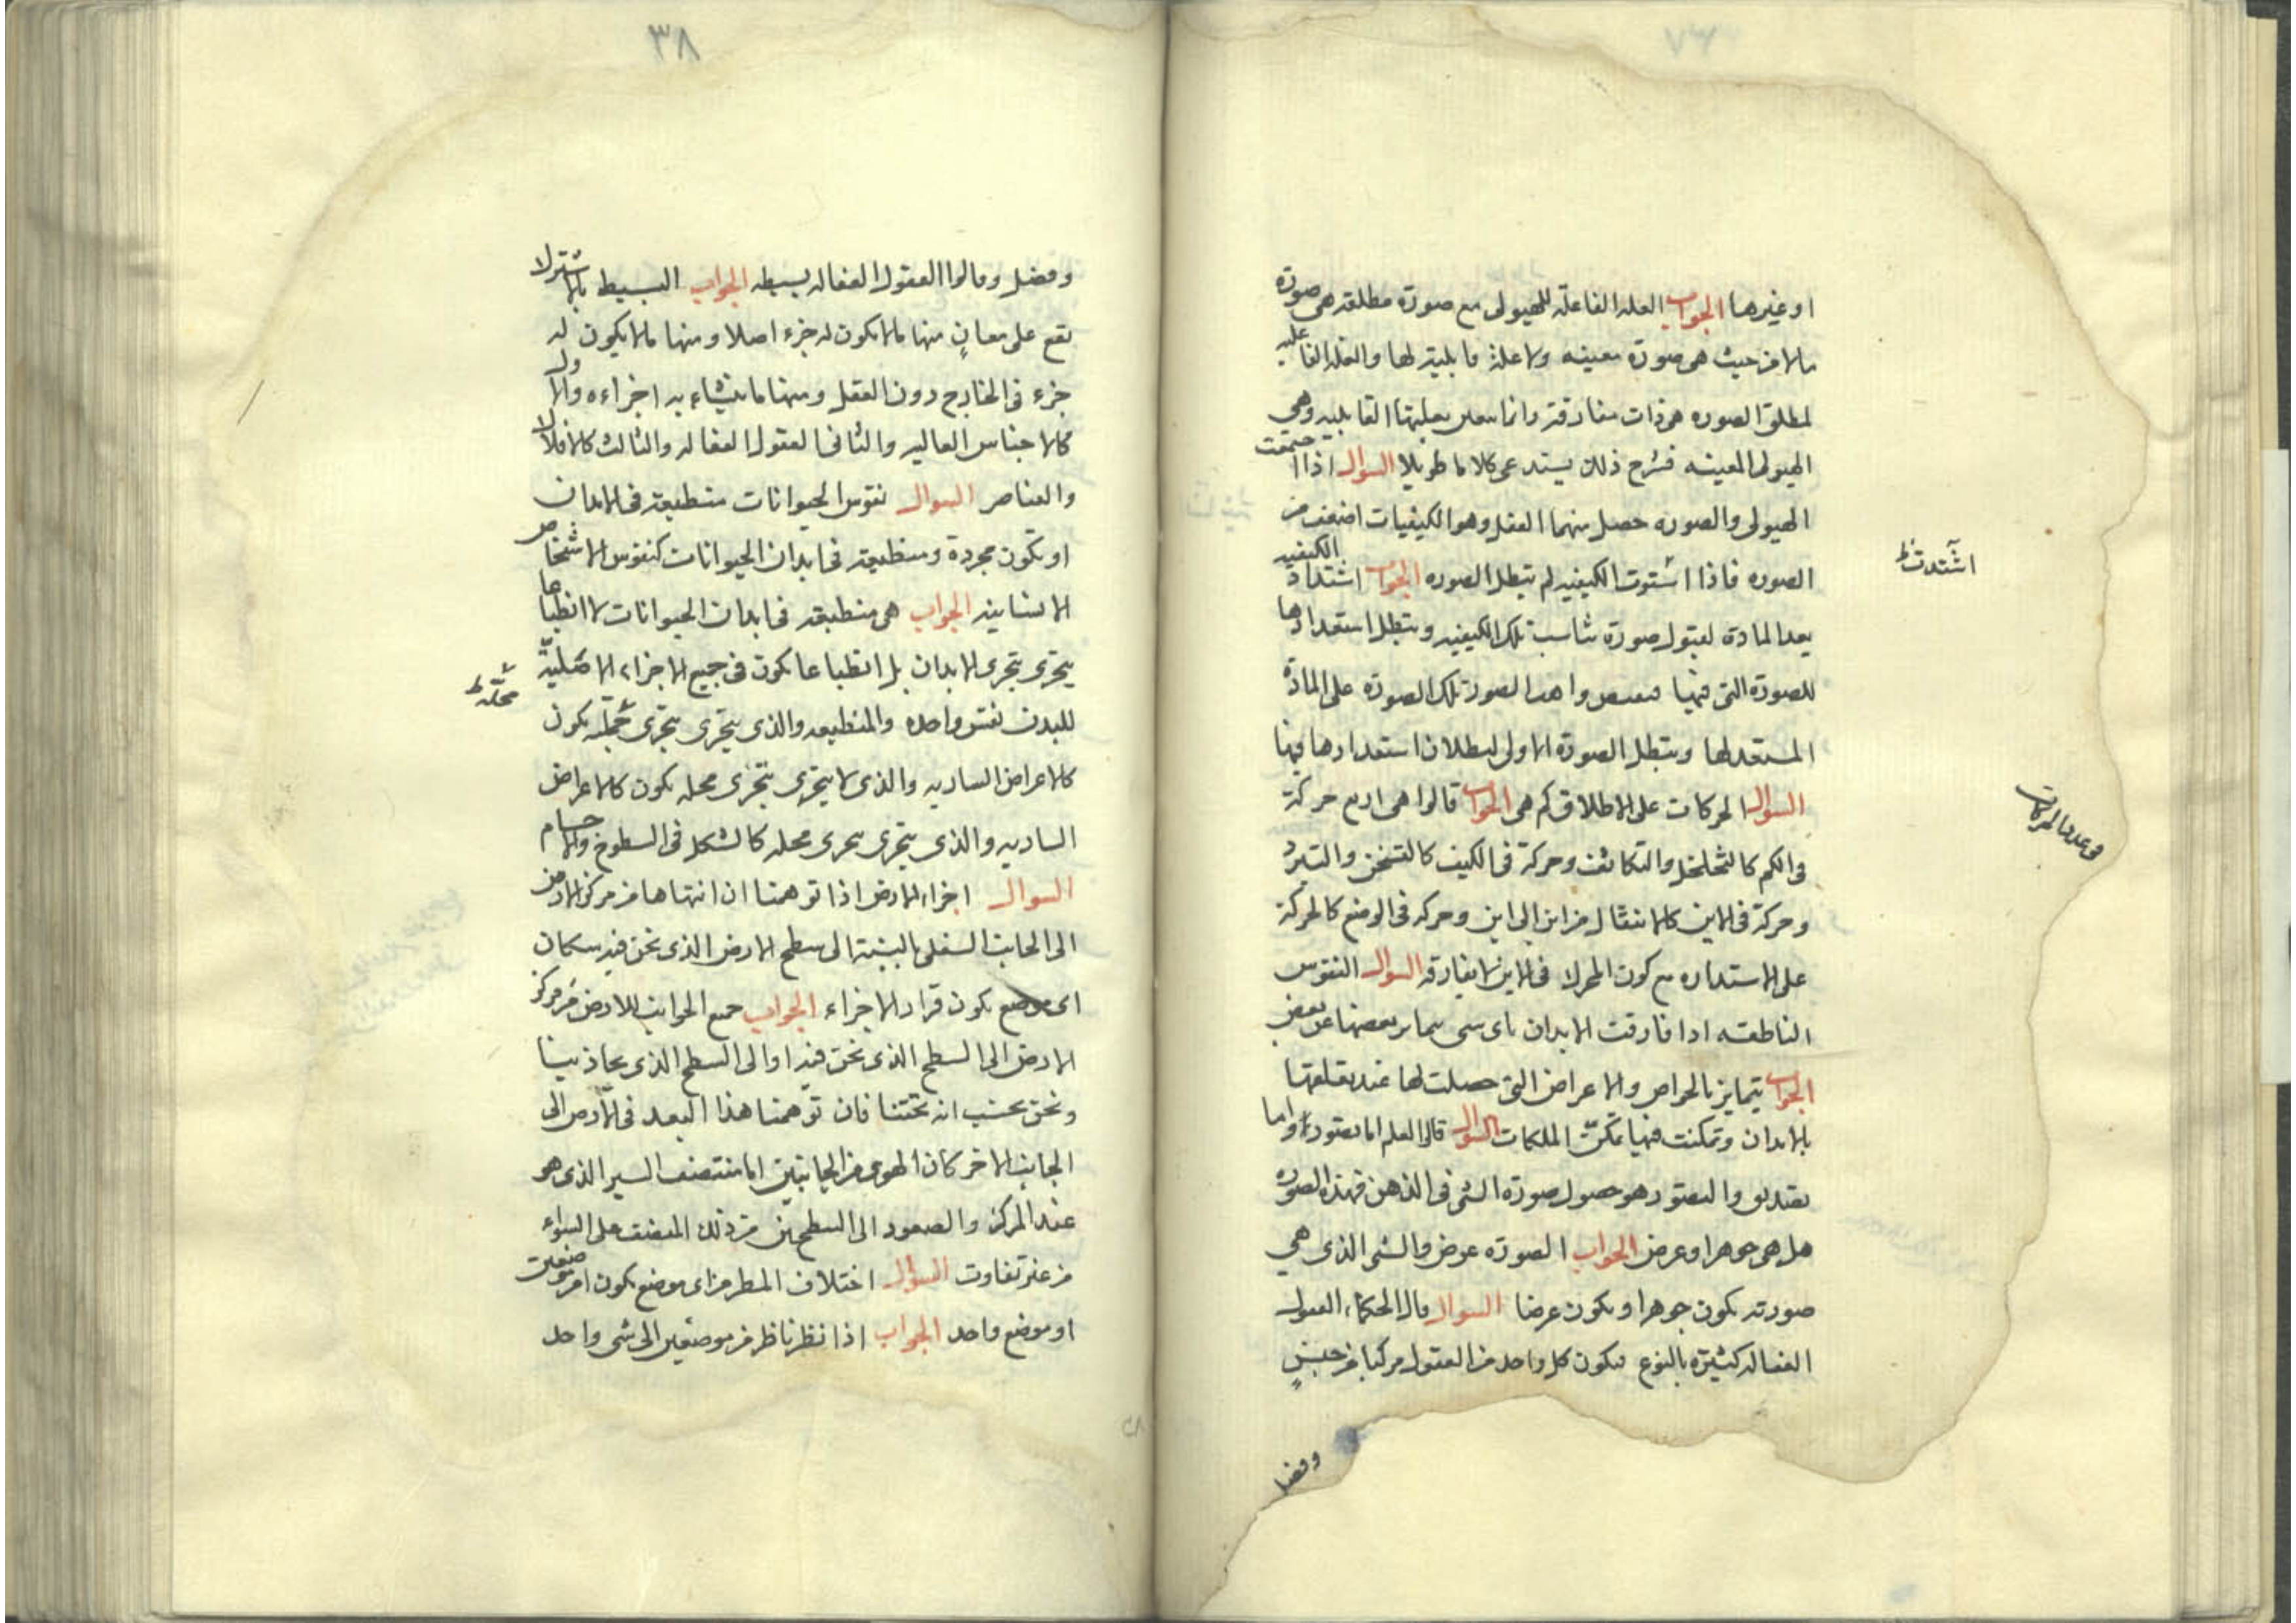 او غيرها الجواب العله الفاعلة للهيولى مع صورة مطلقه هى صورة
ما لا من حيث هى صورة معينه ولا علة قابلية لها والعله الفاعليه
لمطلق الصوره هى ذات مفارقة وانما القابليه وهى
الهيولى المعينه فشرح ذلك يستدعى كلاما طويلا السوال اذا اجتمعت
الهيولى والصوره حصل منهما العقل وهو الكيفيات اضعف من
الصوره فاذا اشتوت الكيفيه لم تبطل الصوره الجواب اشتداد الكيفيه
يعد المادة لقبول صورة تناسب تلك الكيفيه ويبطل استعدادها
للصورة التى فيها واهب الصور تلك الصورة على المادة
المستعد لها ويبطل الصورة الاولى لبطلان استعدادها فيها
السوال الحركات على الاطلاق كم هى الجواب قالوا هى اربع حركة
فى الكم كالتخلخل والتكاثف وحركة فى الكيف كالتسخن والتبرد
وحركة فى الاين كالانتقال من اين الى اين وحركه فى الوضع كالحركة
على الاستداره مع كون المحرك فى الاين لا يفارقه السوال النفوس
الناطقه اذا فارقت الابدان باى شى تمايز بعضها عن بعض
الجواب يتمايز بالخواص والاعراض التى حصلت لها عند تعلقها
بالابدان وتمكنت فيها تمكن الملكات السوال قالوا العلم اما تصور واما
تصديق والتصور هو حصول صورة الشى فى الذهن فهذه الصوره
هل هى جوهر او عرض الجواب الصوره عرض والشى الذى هى
صورته يكون جوهرا ويكون عرضا السوال قال الحكماء العقول
الفعاله كثيرة بالنوع فيكون كل واحد من العقول مركبا من جنس
وفصل
اشتدت ظ
فى عدد الحركات
٣٨
وفصل وقالوا العقول الفعاله بسيطه الجواب البسيط بالاشتراك
يقع على معان منها ما لا يكون له جزء اصلا ومنها ما لا يكون له
جزء فى الخارج دون العقل ومنها ما يتشابه اجزاءه والاول
كالاجناس العاليه والثانى العقول الفعاله والثالث كالافلاك
والعناصر السوال نفوس الحيوانات منطبعة فى الابدان
او تكون مجردة ومنطبعه فى ابدان الحيوانات كنفوس الاشخاص
الانسانيه الجواب هى منطبعه فى ابدان الحيوانات لا انطباعا
يتجزى بتجزى الابدان بل انطباعا يكون فى جميع الاجزاء الاصلية
للبدن نفس واحده والمنطبعه والذى يتجزى بتجزى محله يكون
كالاعراض الساريه والذى لا يتجزى بتجزى محله يكون كالاعراض
الساريه والذى يتجزى بتجزى محله كالشكل فى السطوح والاجسام
السوال اجزاء الارض اذا توهمنا ان انتهاها من مركز الارض
الى الجانب السفلى بالنسبة الى سطح الارض الذى نحن فيه سكان
اى موضع يكون قرار الاجزاء الجواب جميع الجوانب للارض من مركز
الارض الى السطح الذى نحن فيه او الى السطح الذى يحاذينا
ونحن نحسب انه تحتنا فان توهمنا هذا البعد فى الارض الى
الجانب الاخر كان الهوى من الجانبين اما منتصف السير الذى هو
عند المركز والصعود الى السطحين من ذلك المنصف على السواء
من غير تفاوت السؤال اختلاف المنظر من اى موضع يكون امن موضعين
او موضع واحد الجواب اذا نظر ناظر من موضعين الى شى واحد
محله ظ